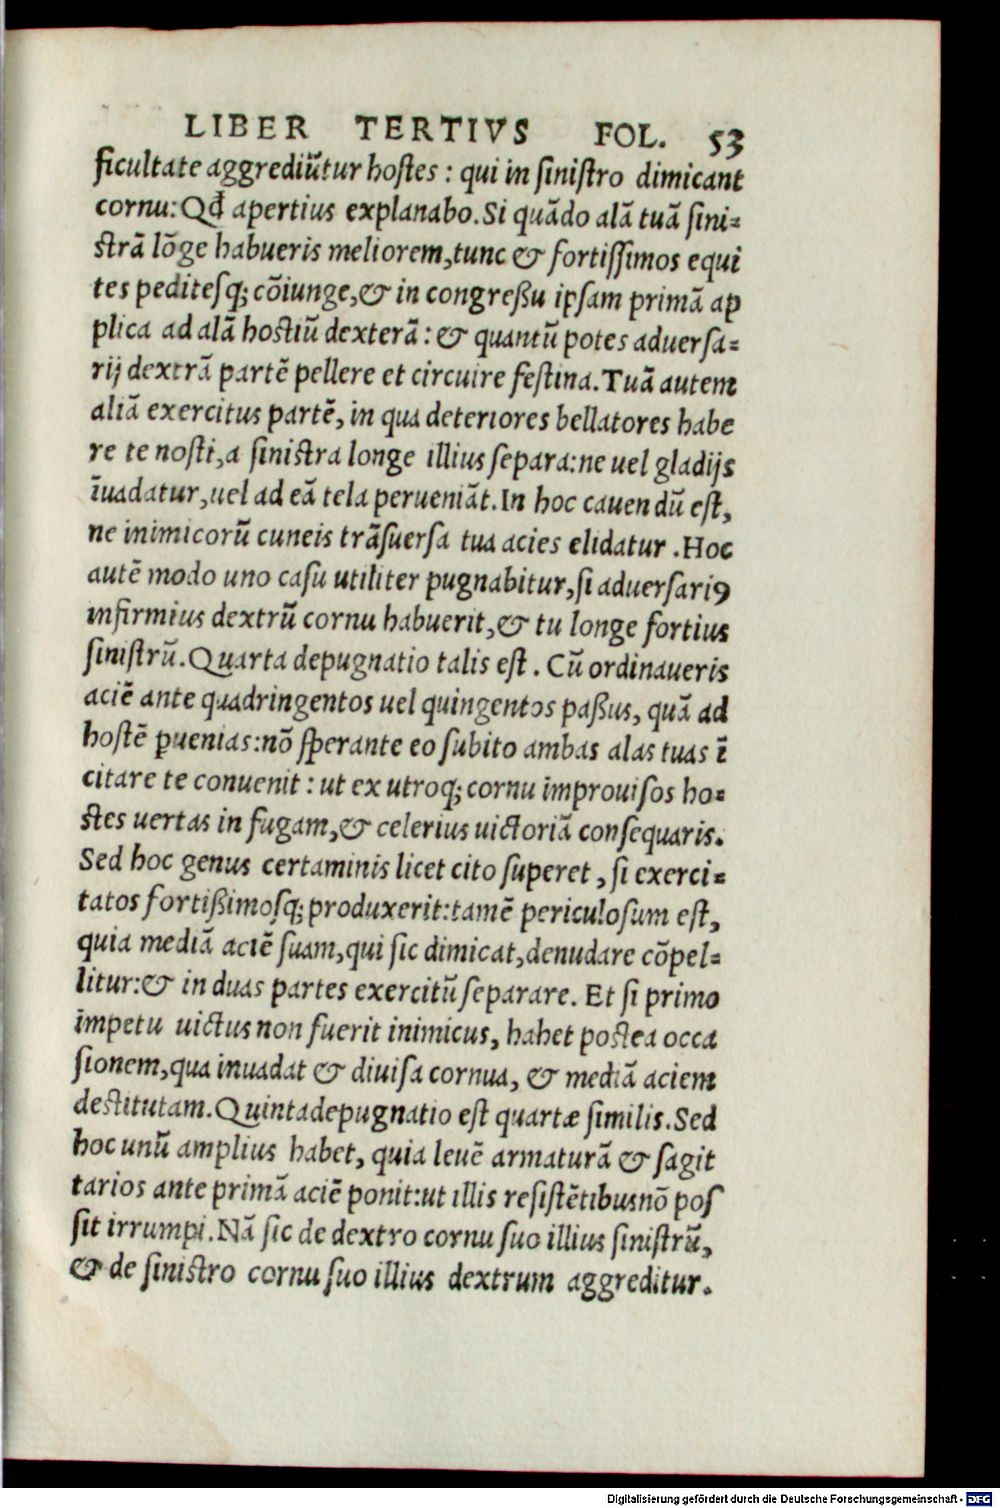 LIBER TERTIVS FOL. 53
ficultate aggrediũtur hostes : qui in sinistro dimicant
cornu: Qđ apertius explanabo. Si quãdo alã tuã sini-
strã lõge habueris meliorem, tunc & fortissimos equi
tes peditesq; cõiunge, & in congreßu ipsam primã ap
plica ad alã hostiũ dexterã : & quantũ potes aduersa-
rij dextrã partẽ pellere et circuire festina. Tuã autem
aliã exercitus partẽ, in qua deteriores bellatores habe
re te nosti, a sinistra longe illius separa: ne uel gladijs
ĩuadatur, uel ad eã tela perueniãt. In hoc cauendũ est,
ne inimicorũ cuneis trãsuersa tua acies elidatur . Hoc
autẽ modo uno casu utiliter pugnabitur, si aduersariꝰ
infirmius dextrũ cornu habuerit, & tu longe fortius
sinistrũ. Quarta depugnatio talis est . Cũ ordinaueris
aciẽ ante quadringentos uel quingentos paßus, quã ad
hostẽ ꝑuenias: nõ sperante eo subito ambas alas tuas ĩ
citare te conuenit : ut ex utroq; cornu improuisos ho-
stes uertas in fugam, & celerius uictoriã consequaris.
Sed hoc genus certaminis licet cito superet , si exerci-
tatos fortißimosq; produxerit: tamẽ periculosum est,
quia mediã aciẽ suam, qui sic dimicat, denudare cõpel-
litur: & in duas partes exercitũ separare. Et si primo
impetu uictus non fuerit inimicus, habet postea occa
sionem, qua inuadat & diuisa cornua, & mediã aciem
destitutam. Quinta depugnatio est quartæ similis. Sed
hoc unũ amplius habet, quia leuẽ armaturã & sagit
tarios ante primã aciẽ ponit: ut illis resistẽtibus nõ pos
sit irrumpi. Nã sic de dextro cornu suo illius sinistrũ,
& de sinistro cornu suo illius dextrum aggreditur.
Digitalisierung gefördert durch die Deutsche Forschungsgemeinschaft - DFG